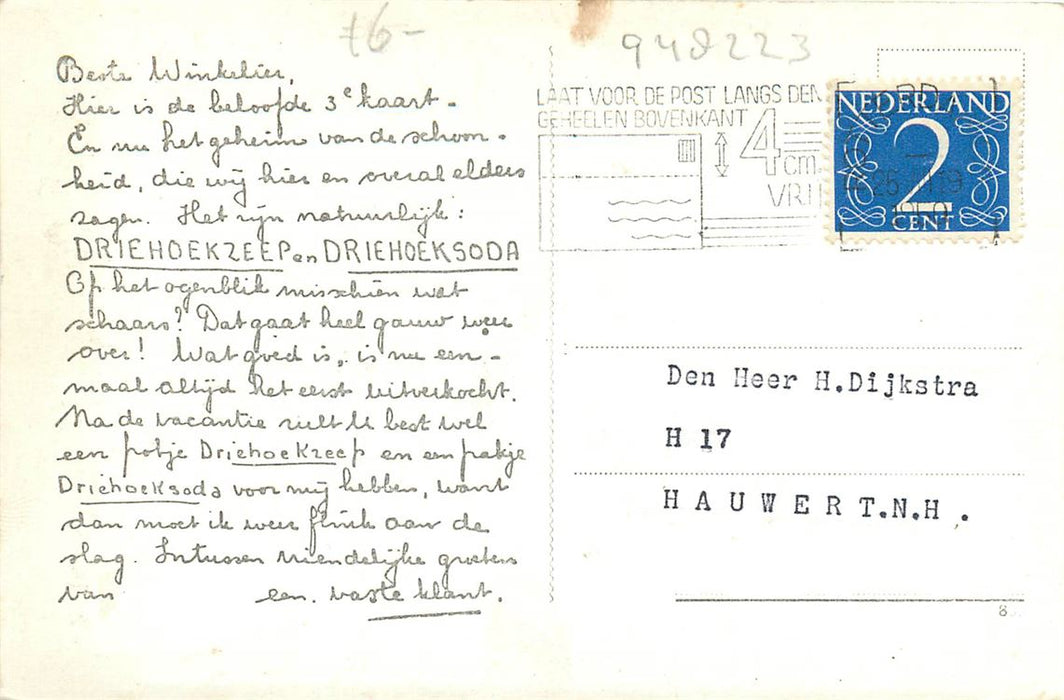 f6-
948223
Beste Winkelier,
Hier is de beloofde 3e kaart.
En nu het geheim van de schoon-
heid, die wij hier en overal elders
zagen. Het zijn natuurlijk:
DRIEHOEKZEEP en DRIEHOEKSODA
Op het ogenblik misschien wat
schaars? Dat gaat heel gauw weer
over! Wat goed is, is nu een-
maal altijd het eerst uitverkocht.
Na de vacantie zult U best wel
een potje Driehoekzeep en een pakje
Driehoeksoda voor mij hebben, want
dan moet ik weer flink aan de
slag. Intussen vriendelijke groeten
van een vaste klant.
LAAT VOOR DE POST LANGS DEN
GEHEELEN BOVENKANT
4
cm
VRIJ
NEDERLAND
2
CENT
Den Heer H.Dijkstra
H 17
HAUWERT.N.H.